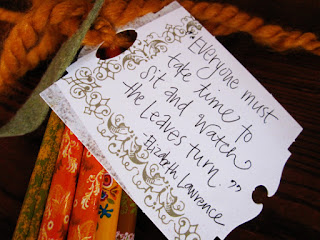 "Everyone must
take time to
sit and watch
the leaves turn."
Elizabeth Lawrence